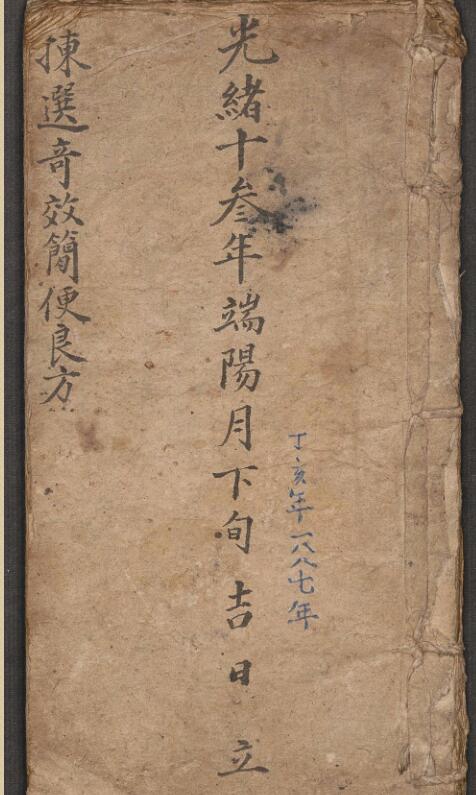 光緒十叁年端陽月下旬吉日立
丁亥年一八八七年
揀選奇效簡便良方